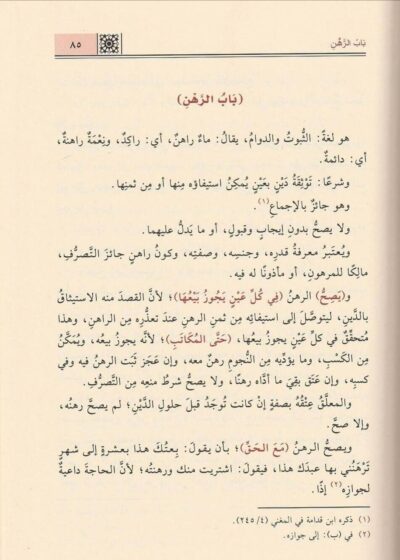 بَابُ الرَّهْنِ
٨٥
(بَابُ الرَّهْنِ)
هو لغةً: الثُّبوتُ والدوامُ، يقالُ: ماءٌ راهنٌ، أي: راكِدٌ، ونِعْمَةٌ راهنةٌ،
أي: دائمةٌ.
وشرعًا: تَوْثِقَةُ دَيْنٍ بعَيْنٍ يُمكِنُ استيفاؤه مِنها أو مِن ثمنِها.
وهو جائزٌ بالإجماعِ(١).
ولا يصحُّ بدونِ إيجابٍ وقبولٍ، أو ما يَدلُّ عليهما.
ويُعتَبرُ معرفةُ قدرِه، وجنسِه، وصفتِه، وكونُ راهنٍ جائزَ التَّصرُّفِ،
مالِكًا للمرهونِ، أو مأذونًا له فيه.
و(يَصِحُّ) الرهنُ (فِي كُلِّ عَيْنٍ يَجُوزُ بَيْعُهَا)؛ لأنَّ القصدَ منه الاستيثاقُ
بالدَّينِ، ليتوصَّلَ إلى استيفائِه مِن ثمنِ الرهنِ عندَ تعذُّرِه مِن الراهنِ، وهذا
مُتحقِّقٌ في كلِّ عَينٍ يجوزُ بيعُها، (حَتَّى المُكَاتَبِ)؛ لأنَّه يجوزُ بيعُه، ويُمَكَّنُ
مِن الكَسْبِ، وما يؤدِّيه مِن النُّجومِ رهنٌ معه، وإن عَجَز ثَبَت الرهنُ فيه وفي
كسبِه، وإن عَتَق بقِيَ ما أدَّاه رهنًا، ولا يصحُّ شرطُ منعِه مِن التَّصرُّفِ.
والمعلَّقُ عِتْقُه بصفةٍ إن كانت تُوجَدُ قبلَ حلولِ الدَّيْنِ؛ لم يصحَّ رهنُه،
وإلا صحَّ.
ويصحُّ الرهنُ (مَعَ الحَقِّ)؛ بأن يقولَ: بِعتُكَ هذا بعشرةٍ إلى شهرٍ
تَرْهَنُني بها عبدَك هذا، فيقولَ: اشتريت منك ورهنتُه؛ لأنَّ الحاجةَ داعيةٌ
لجوازِه(٢) إذًا.
(١) ذكره ابن قدامة في المغني (٤/٢٤٥).
(٢) في (ب): إلى جوازه.